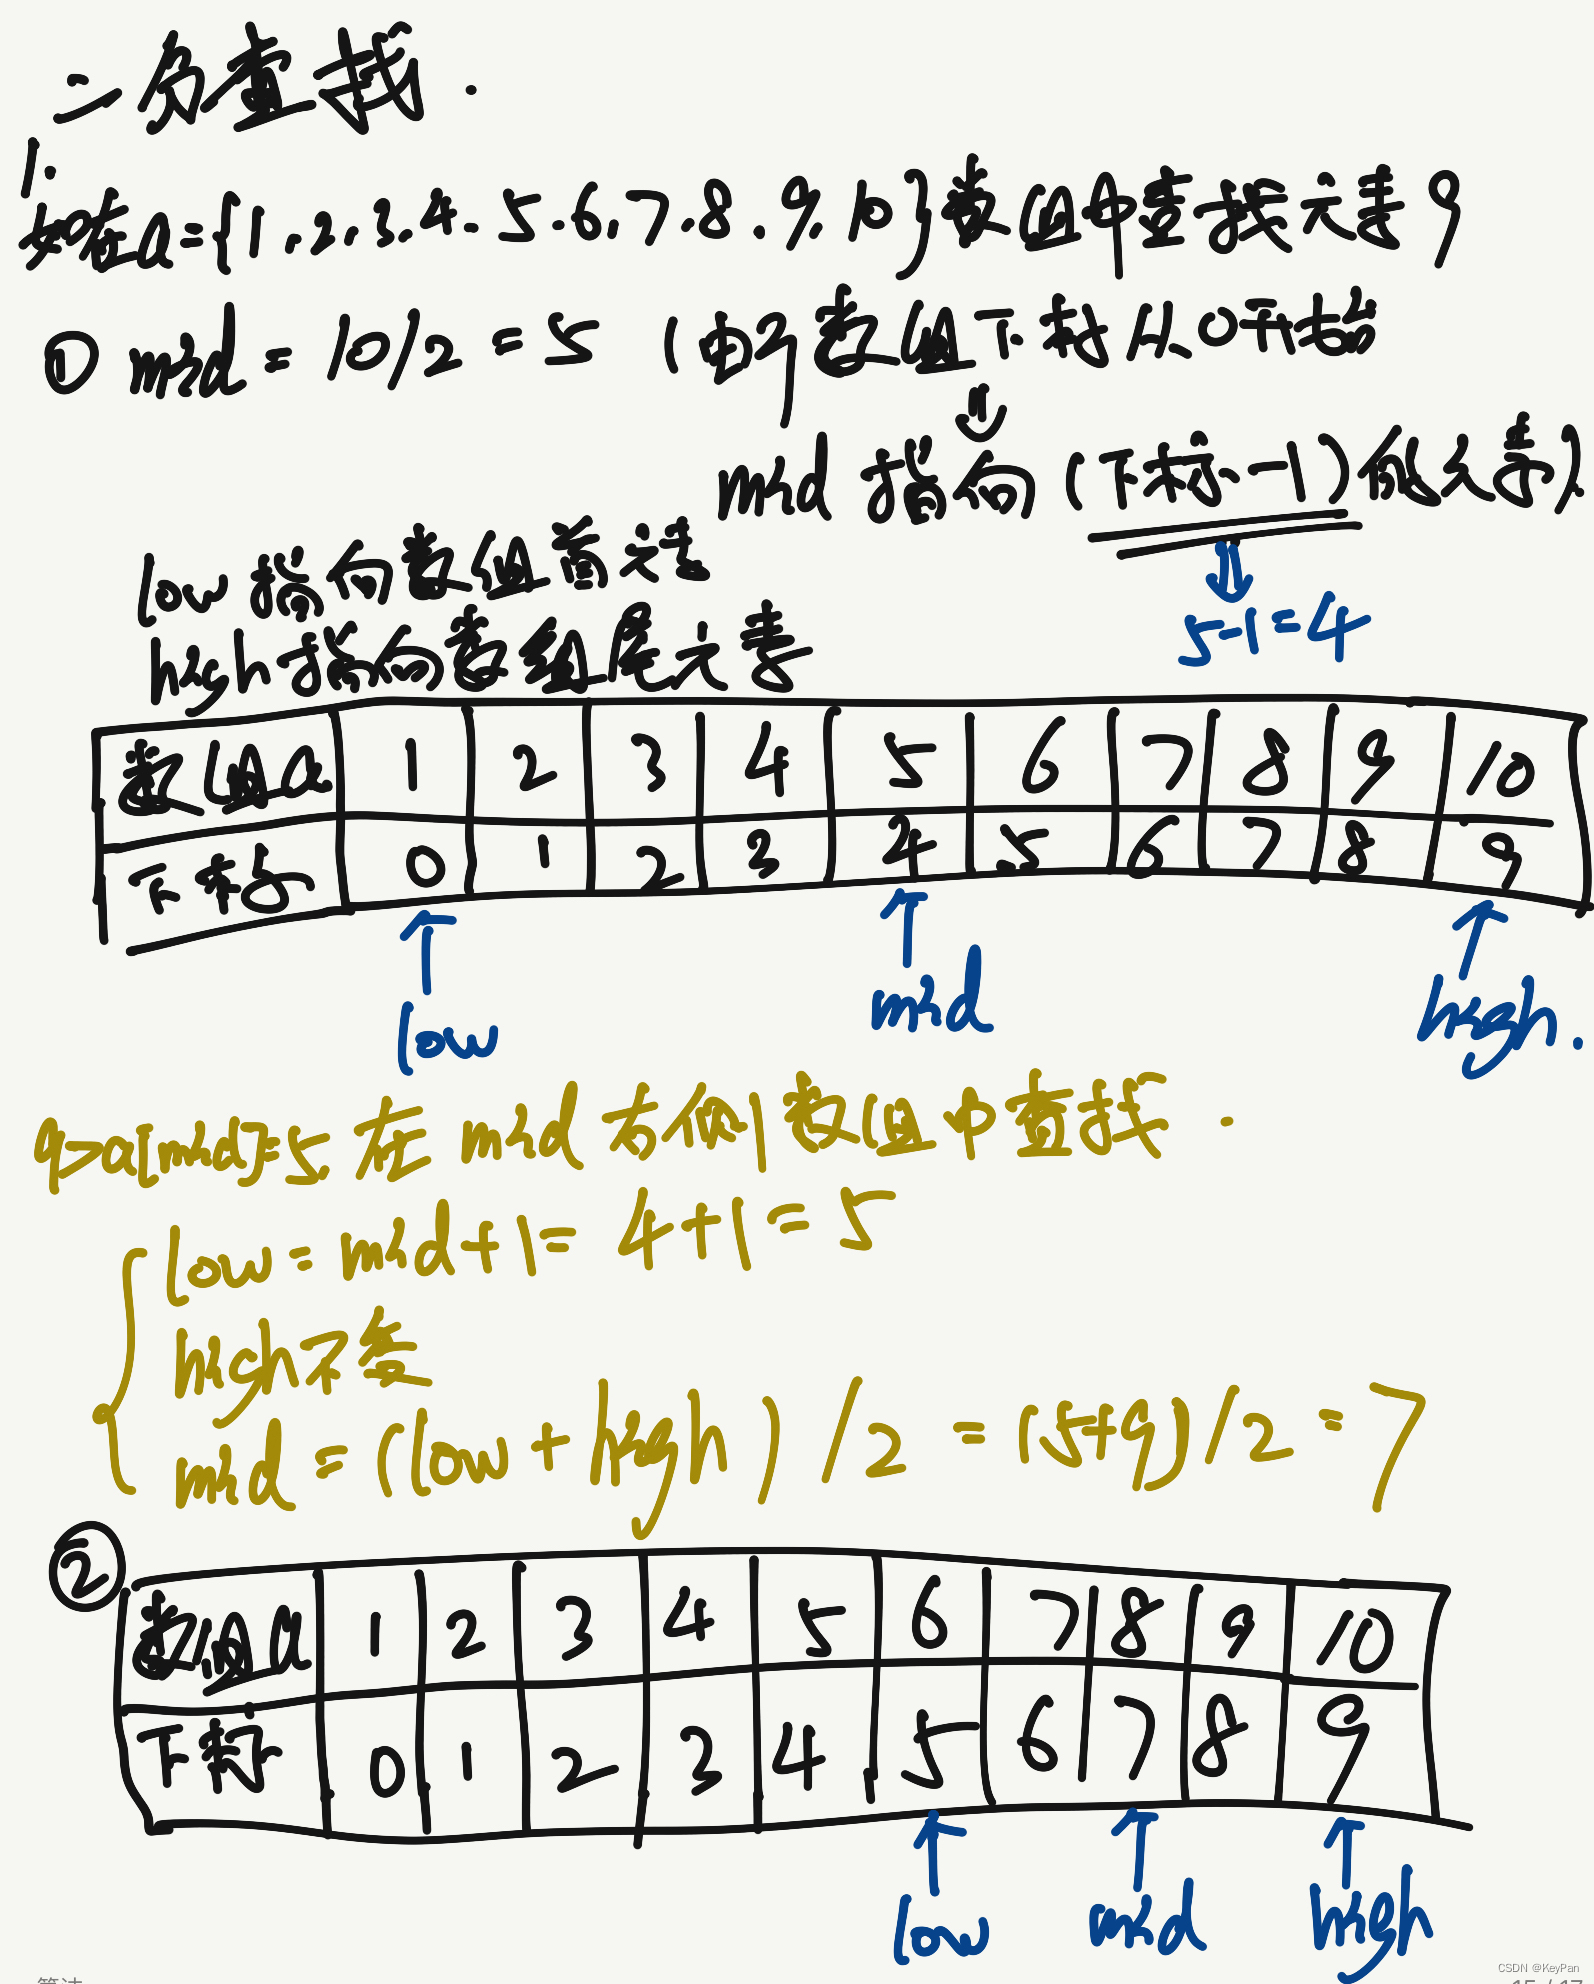 二分查找.
1.
如在a={1,2,3,4,5,6,7,8,9,10}数组中查找元素9
① mid = 10/2 = 5 (由于数组下标从0开始
⇓
mid 指向(下标-1)的元素)
⇓
5-1=4
low 指向数组首元素
high指向数组尾元素
数组a 1 2 3 4 5 6 7 8 9 10
下标 0 1 2 3 4 5 6 7 8 9
low mid high.
9>a[mid]=5,在 mid 右侧数组中查找.
low = mid+1= 4+1=5
high不变
mid = (low + high) /2 = (5+9)/2 = 7
②
数组a 1 2 3 4 5 6 7 8 9 10
下标 0 1 2 3 4 5 6 7 8 9
low mid high
CSDN @KeyPan